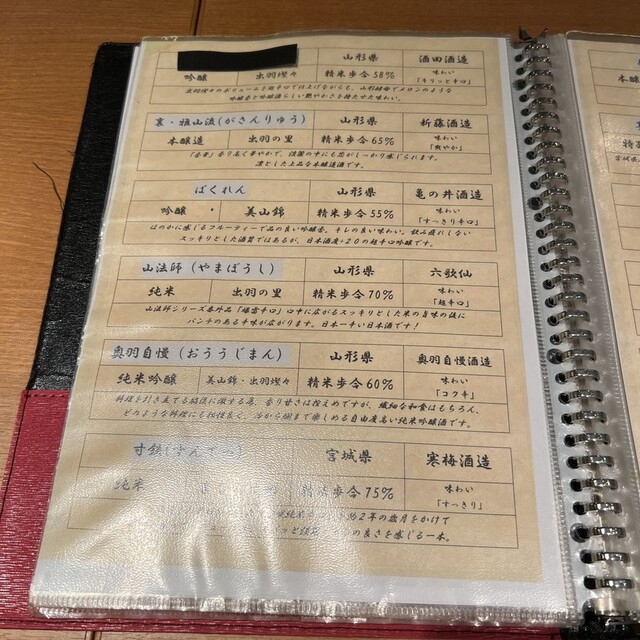 山形県 酒田酒造
吟醸 出羽燦々 精米歩合58% 味わい
「キリッと辛口」
出羽燦々のボリュームを超辛口で仕上げながらも、山形酵母でメロンのような
吟醸香と吟醸酒らしい艶やかさを持たせた味わい。
裏・雅山流(がさんりゅう) 山形県 新藤酒造
本醸造 出羽の里 精米歩合65% 味わい
「爽やか」
「香華」香り高く華やかで、清潔の中にも芯がしっかり感じられます。
凛とした上品な本醸造酒です。
ばくれん 山形県 亀の井酒造
吟醸 美山錦 精米歩合55% 味わい
「すっきり辛口」
ほのかに感じるフルーティーで品の良い吟醸香。キレの良い味わい。飲み疲れしない
スッキリとした酒質ではあるが、日本酒度+20の超辛口吟醸です。
山法師(やまほうし) 山形県 六歌仙
純米 出羽の里 精米歩合70% 味わい
「超辛口」
山法師シリーズ番外品「爆雷辛口」口中に広がるスッキリとした米の旨味の後に
パンチのある辛味が広がります。日本一辛い日本酒です!
奥羽自慢(おううじまん) 山形県 奥羽自慢酒造
純米吟醸 美山錦・出羽燦々 精米歩合60% 味わい
「コクキレ」
料理を引き立てる脇役に徹する為、香り甘さは控えめですが、繊細な和食はもちろん、
どのような料理にも相性良く、冷から燗まで楽しめる自由度高い純米吟醸酒です。
寸鉄(すんてつ) 宮城県 寒梅酒造
純米 精米歩合75% 味わい
「すっきり」
2年の歳月をかけて
の良さを感じる一本。
山形